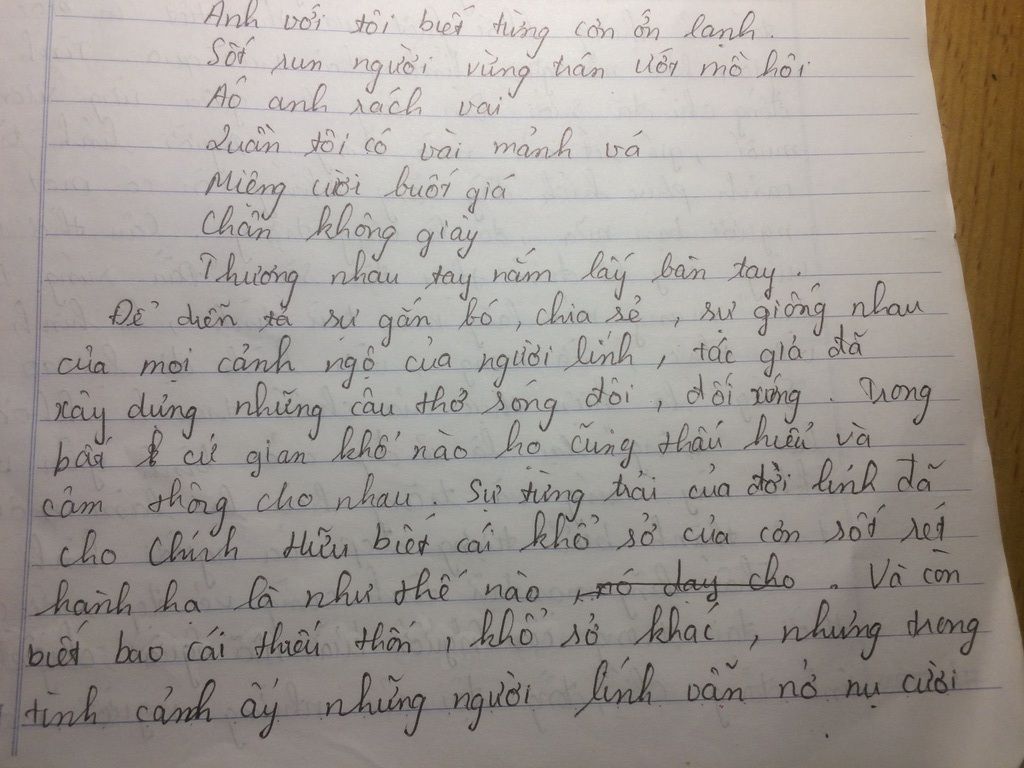 Anh với tôi biết từng cơn ổn lạnh.
Sốt run người vừng trán ướt mồ hôi
Áo anh rách vai
Quần tôi có vài mảnh vá
Miệng cười buốt giá
Chân không giày
Thương nhau tay nắm lấy bàn tay.
Để diễn tả sự gắn bó, chia sẻ, sự giống nhau
của mọi cảnh ngộ của người lính, tác giả đã
xây dựng những câu thơ sóng đôi, đối xứng. Trong
bất cứ gian khổ nào họ cũng thấu hiểu và
cảm thông cho nhau. Sự từng trải của đời lính đã
cho Chính Hữu biết cái khổ sở của cơn sốt rét
hành hạ là như thế nào, nó dạy cho. Và còn
biết bao cái thiếu thốn, khổ sở khác, nhưng trong
tình cảnh ấy những người lính vẫn nở nụ cười